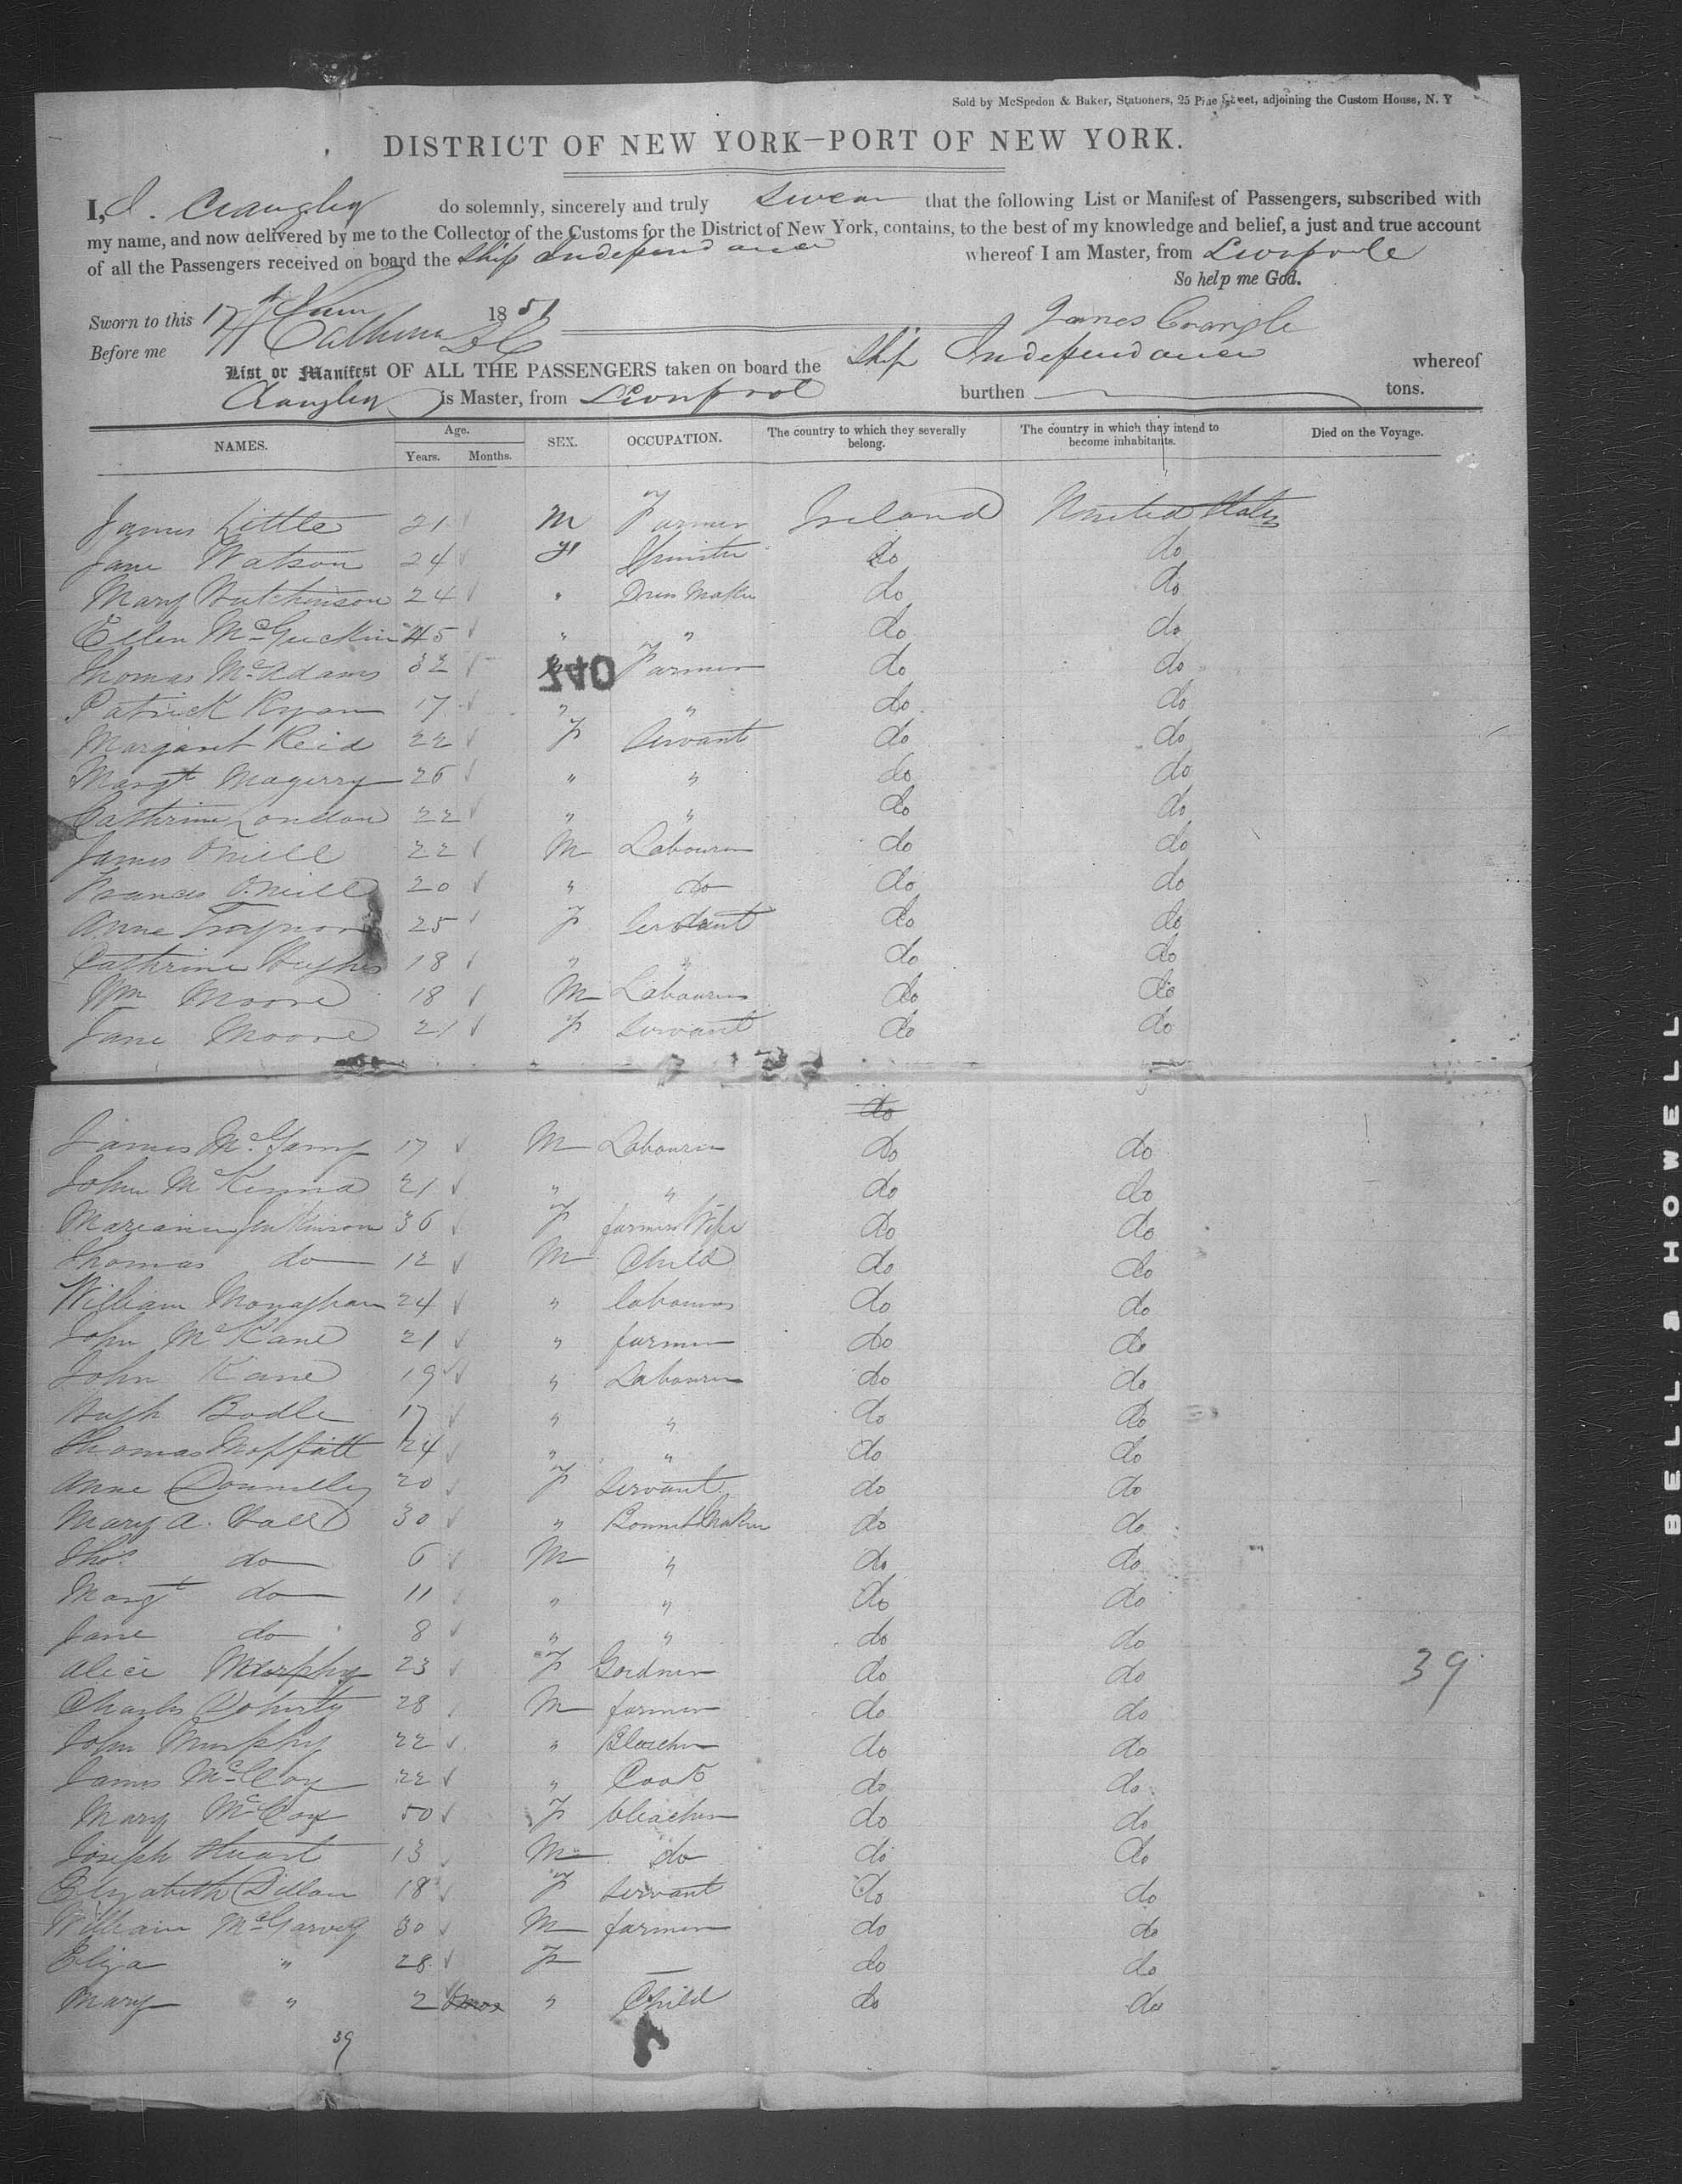 Sold by McSpedon & Baker, Stationers, 25 Pine Street, adjoining the Custom House, N. Y
DISTRICT OF NEW YORK—PORT OF NEW YORK.
I, J. Crangley do solemnly, sincerely and truly swear that the following List or Manifest of Passengers, subscribed with
my name, and now delivered by me to the Collector of the Customs for the District of New York, contains, to the best of my knowledge and belief, a just and true account
of all the Passengers received on board the Ship Independance whereof I am Master, from Liverpole
So help me God.
Sworn to this 17th June 1851 James Crangle
Before me Calhoun
List or Manifest OF ALL THE PASSENGERS taken on board the Ship Independance whereof
Crangley is Master, from Liverpool burthen tons.
NAMES. Age. Years. Months. SEX. OCCUPATION. The country to which they severally belong. The country in which they intend to become inhabitants. Died on the Voyage.
James Little 21 M Farmer Ireland United States
Jane Watson 24 F Spinster do do
Mary Hutchinson 24 " Dress Maker do do
Ellen McGuckin 45 " " do do
Thomas McAdams 32 Farmer do do
740
Patrick Ryan 17 " " do do
Margaret Reid 22 F Servant do do
Margt Magerry 26 " " do do
Cathrine London 22 " " do do
James Oneill 22 M Labourer do do
Frances O.neill 20 " do do do
Anne Traynor 25 F Servant do do
Cathrine Hughes 18 " " do do
Wm Moore 18 M Labourer do do
Jane Moore 21 F Servant do do
do
James Mc 17 M Labourer do do
John McKenna 21 " " do do
Jenkinson 36 F farmers Wife do do
Thomas do 12 M Child do do
William Monaghan 24 " labourer do do
John McKane 21 " farmer do do
John Kane 19 " Labourer do do
Hugh Bodle 17 " " do do
Thomas Moffatt 24 " " do do
Anne Donnelly 20 F Servant do do
Mary A. Hall 30 " Bonnet Maker do do
Thos do 6 M " do do
Margt do 11 " " do do
Jane do 8 " " do do
Alice Murphy 23 F Gardner do do 39
Charles Doherty 28 M farmer do do
John Murphy 22 " Bleacher do do
James McCoy 22 " Cook do do
Mary McCoy 50 F bleacher do do
Joseph Stuart 13 M do do do
Elizabeth Dillon 18 F servant do do
William McGarvey 30 M farmer do do
Eliza " 28 F — do do
Mary " 2 mos " Child do do
39
BELL & HOWELL